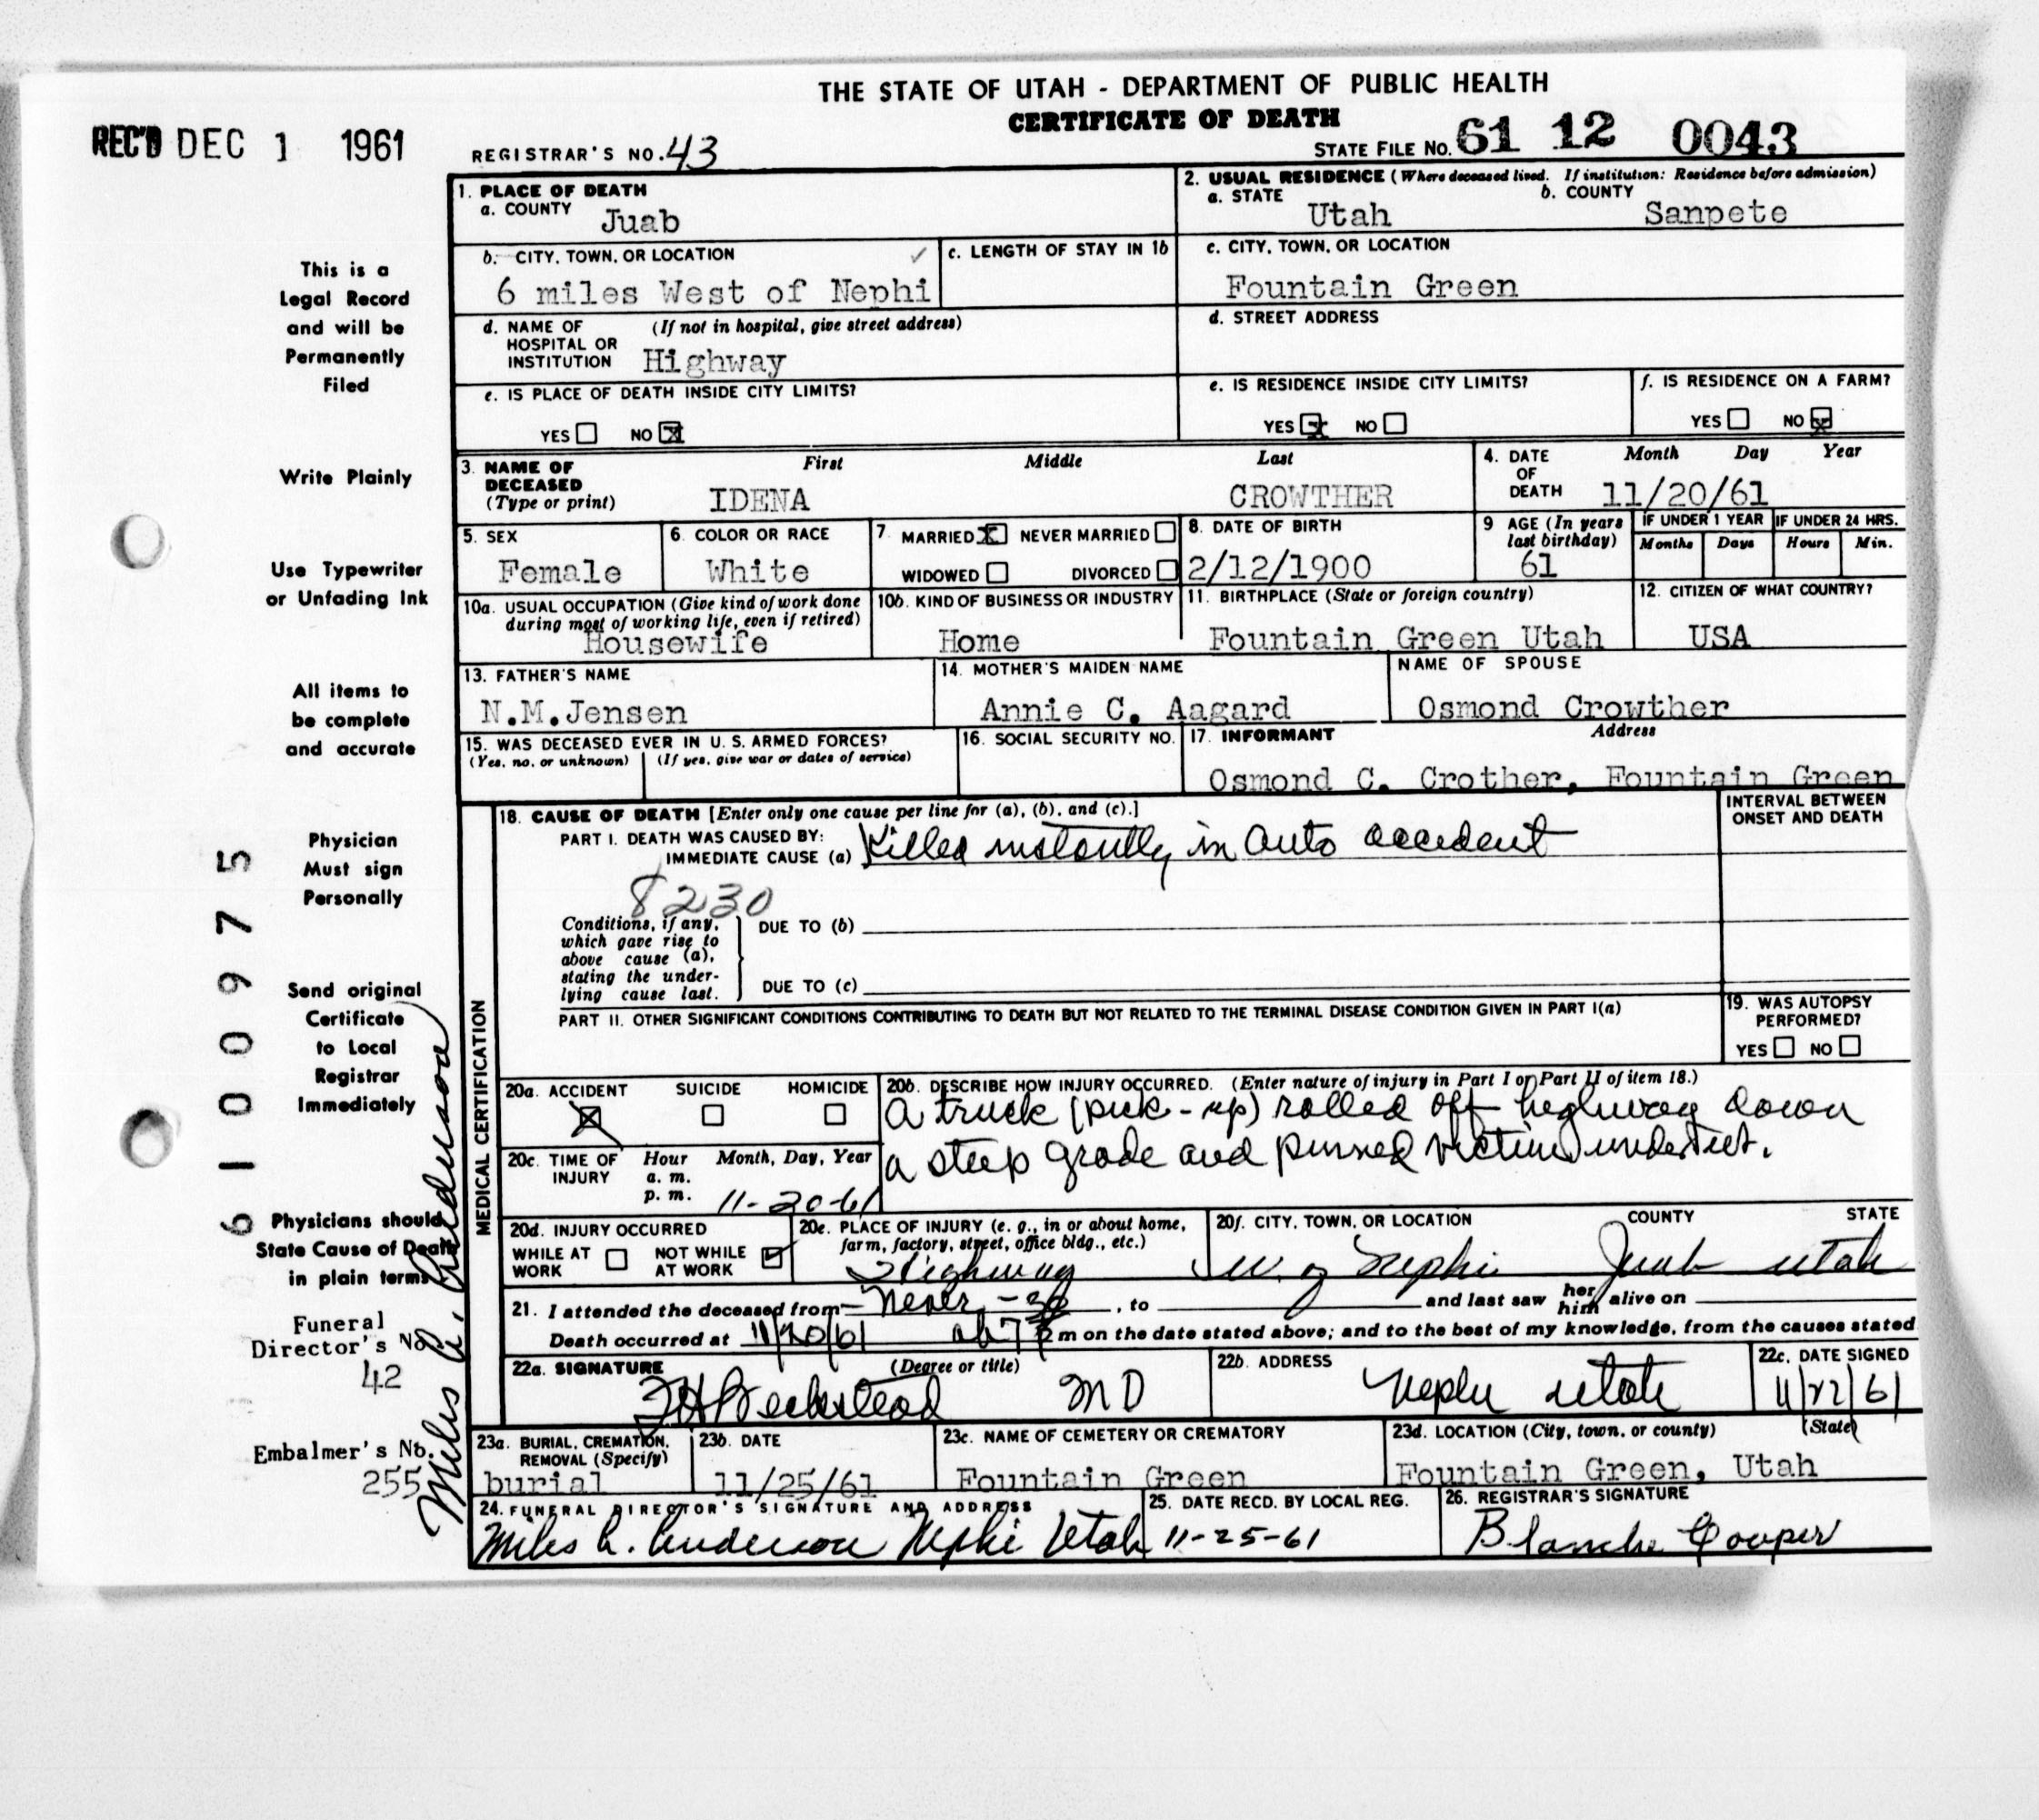 THE STATE OF UTAH - DEPARTMENT OF PUBLIC HEALTH
CERTIFICATE OF DEATH
REC'D DEC 1 1961
REGISTRAR'S NO. 43
STATE FILE NO. 61 12 0043
1. PLACE OF DEATH
a. COUNTY Juab
2. USUAL RESIDENCE (Where deceased lived. If institution: Residence before admission)
a. STATE Utah b. COUNTY Sanpete
b. CITY, TOWN, OR LOCATION ✓
6 miles West of Nephi
c. LENGTH OF STAY IN 1b
c. CITY, TOWN, OR LOCATION
Fountain Green
d. NAME OF HOSPITAL OR INSTITUTION (If not in hospital, give street address)
Highway
d. STREET ADDRESS
e. IS PLACE OF DEATH INSIDE CITY LIMITS?
YES ☐ NO ☒
e. IS RESIDENCE INSIDE CITY LIMITS?
YES ☒ NO ☐
f. IS RESIDENCE ON A FARM?
YES ☐ NO ☒
3. NAME OF DECEASED (Type or print)
First Middle Last
IDENA CROWTHER
4. DATE OF DEATH Month Day Year
11/20/61
5. SEX
Female
6. COLOR OR RACE
White
7 MARRIED ☒ NEVER MARRIED ☐
WIDOWED ☐ DIVORCED ☐
8. DATE OF BIRTH
2/12/1900
9 AGE (In years last birthday)
61
IF UNDER 1 YEAR
Months Days
IF UNDER 24 HRS.
Hours Min.
10a. USUAL OCCUPATION (Give kind of work done during most of working life, even if retired)
Housewife
10b. KIND OF BUSINESS OR INDUSTRY
Home
11. BIRTHPLACE (State or foreign country)
Fountain Green Utah
12. CITIZEN OF WHAT COUNTRY?
USA
13. FATHER'S NAME
N.M.Jensen
14. MOTHER'S MAIDEN NAME
Annie C. Aagard
NAME OF SPOUSE
Osmond Crowther
15. WAS DECEASED EVER IN U. S. ARMED FORCES?
(Yes, no, or unknown) (If yes, give war or dates of service)
16. SOCIAL SECURITY NO.
17. INFORMANT Address
Osmond C. Crother, Fountain Green
MEDICAL CERTIFICATION
18. CAUSE OF DEATH [Enter only one cause per line for (a), (b), and (c).]
INTERVAL BETWEEN ONSET AND DEATH
PART I. DEATH WAS CAUSED BY:
IMMEDIATE CAUSE (a) Killed instantly in auto accident
8230
Conditions, if any, which gave rise to above cause (a), stating the underlying cause last.
DUE TO (b)
DUE TO (c)
PART II. OTHER SIGNIFICANT CONDITIONS CONTRIBUTING TO DEATH BUT NOT RELATED TO THE TERMINAL DISEASE CONDITION GIVEN IN PART I(a)
19. WAS AUTOPSY PERFORMED?
YES ☐ NO ☐
20a. ACCIDENT ☒ SUICIDE ☐ HOMICIDE ☐
20b. DESCRIBE HOW INJURY OCCURRED. (Enter nature of injury in Part I or Part II of item 18.)
A truck (pick-up) rolled off highway down
a steep grade and pinned victim under it.
20c. TIME OF INJURY Hour a. m. p. m. Month, Day, Year
11-20-61
20d. INJURY OCCURRED
WHILE AT WORK ☐ NOT WHILE AT WORK ☑
20e. PLACE OF INJURY (e. g., in or about home, farm, factory, street, office bldg., etc.)
Highway
20f. CITY, TOWN, OR LOCATION COUNTY STATE
W. of Nephi Juab Utah
21. I attended the deceased from Never, to and last saw her him alive on
Death occurred at 11/20/61 m on the date stated above; and to the best of my knowledge, from the causes stated
22a. SIGNATURE (Degree or title)
Beckstead MD
22b. ADDRESS
Nephi Utah
22c. DATE SIGNED
11/22/61
23a. BURIAL, CREMATION, REMOVAL (Specify)
burial
23b. DATE
11/25/61
23c. NAME OF CEMETERY OR CREMATORY
Fountain Green
23d. LOCATION (City, town, or county) (State)
Fountain Green, Utah
24. FUNERAL DIRECTOR'S SIGNATURE AND ADDRESS
Miles A. Anderson Nephi Utah
25. DATE RECD. BY LOCAL REG.
11-25-61
26. REGISTRAR'S SIGNATURE
Blanche Cooper
This is a
Legal Record
and will be
Permanently
Filed
Write Plainly
Use Typewriter
or Unfading Ink
All items to
be complete
and accurate
Physician
Must sign
Personally
Send original
Certificate
to Local
Registrar
Immediately
Physicians should
State Cause of Death
in plain terms
Funeral
Director's No.
42
Embalmer's No.
255
Miles A. Anderson
6 1 0 0 9 7 5